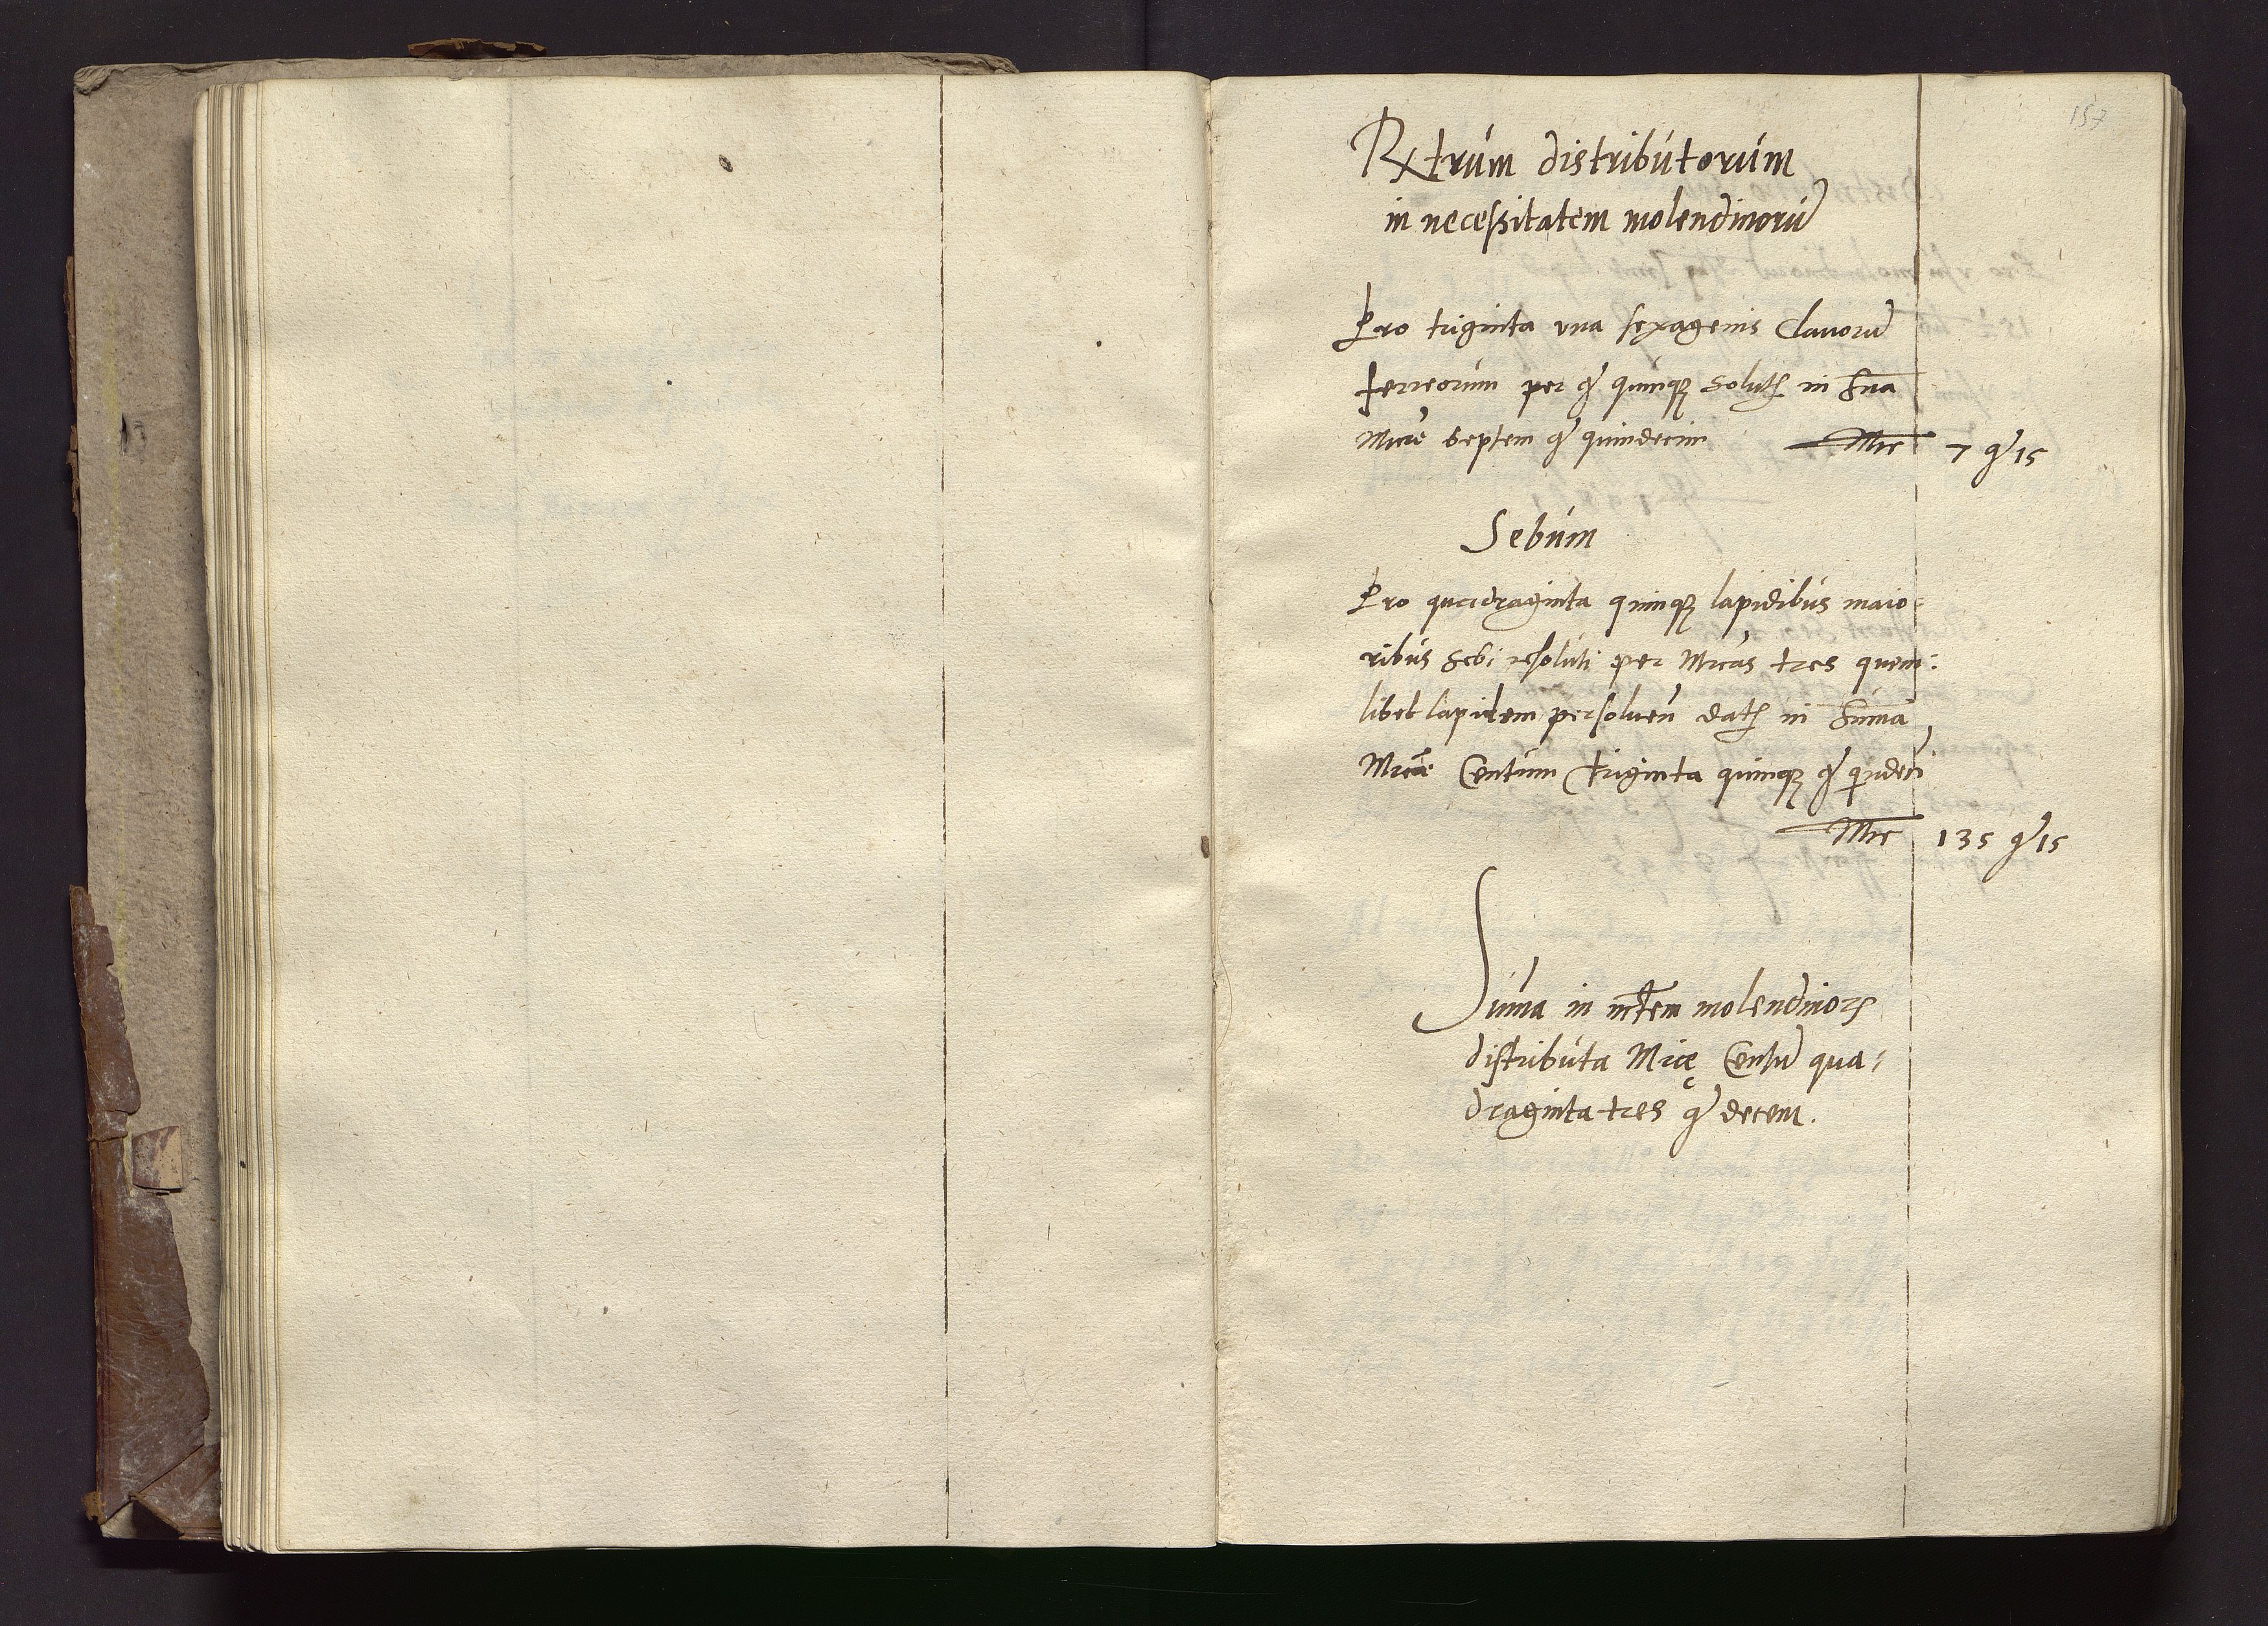 157
Rxtrum distributorum
in neceßitatem molendinorū
Pro triginta una sexagenis Clauorū
ferreorum per gͬ quinqꝫ Solutꝭ in Sūa
Mrce Septem gͬ quindecim Mrc 7 gͬ 15
Sebum
Pro quadraginta quinqꝫ lapidibus maio=
ribus Sebi resoluti per Mrcas tres quem=
libet lapidem persoluen̄ datꝭ in Sum̄a
Mrce Centum triginta quinqꝫ gͬ
Mrc 135 gͬ 15
Sum̄a in nctem molendinoꝝ
distributa Mrcę Centū qua=
draginta tres gͬ decem.